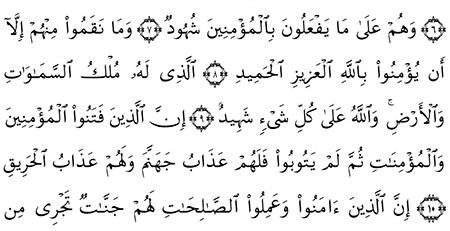 ﴿٦﴾ وَهُمْ عَلَىٰ مَا يَفْعَلُونَ بِٱلْمُؤْمِنِينَ شُهُودٌ ﴿٧﴾ وَمَا نَقَمُوا۟ مِنْهُمْ إِلَّآ
أَن يُؤْمِنُوا۟ بِٱللَّهِ ٱلْعَزِيزِ ٱلْحَمِيدِ ﴿٨﴾ ٱلَّذِى لَهُۥ مُلْكُ ٱلسَّمَـٰوَٰتِ
وَٱلْأَرْضِ ۚ وَٱللَّهُ عَلَىٰ كُلِّ شَىْءٍ شَهِيدٌ ﴿٩﴾ إِنَّ ٱلَّذِينَ فَتَنُوا۟ ٱلْمُؤْمِنِينَ
وَٱلْمُؤْمِنَـٰتِ ثُمَّ لَمْ يَتُوبُوا۟ فَلَهُمْ عَذَابُ جَهَنَّمَ وَلَهُمْ عَذَابُ ٱلْحَرِيقِ
﴿١٠﴾ إِنَّ ٱلَّذِينَ ءَامَنُوا۟ وَعَمِلُوا۟ ٱلصَّـٰلِحَـٰتِ لَهُمْ جَنَّـٰتٌ تَجْرِى مِن